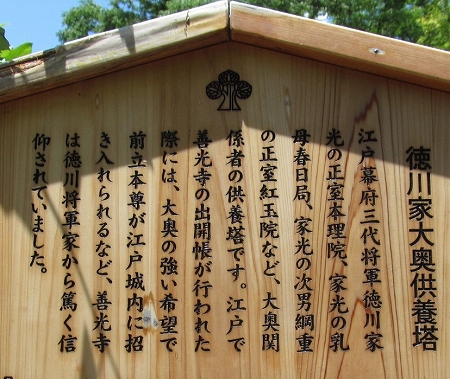 徳川家大奥供養塔
江戸幕府三代将軍徳川家
光の正室本理院、家光の乳
母春日局、家光の次男綱重
の正室紅玉院など、大奥関
係者の供養塔です。江戸で
善光寺の出開帳が行われた
際には、大奥の強い希望で
前立本尊が江戸城内に招
き入れられるなど、善光寺
は徳川将軍家から篤く信
仰されていました。